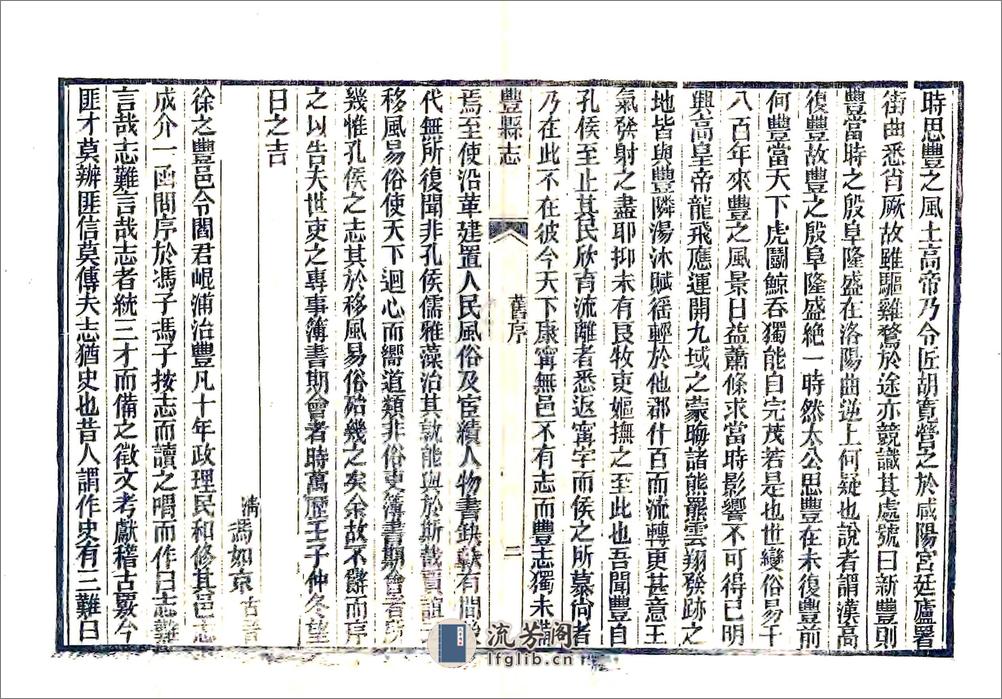 時思豐之風土高帝乃令匠胡寬營之於咸陽宮廷廬署
街曲悉肖厥故雖驅雞鶩於途亦競識其處號曰新豐則
豐當時之殷阜隆盛在洛陽曲逆上何疑也說者謂漢高
復豐故豐之殷阜隆盛絕一時然太公思豐在未復豐前
何豐當天下虎鬬鯨吞獨能自完茂若是也世變俗易千
八百年來豐之風景日益蕭條求當時影響不可得已明
興高皇帝龍飛應運開九域之蒙晦諸熊羆雲翔發跡之
地皆與豐隣湯沐賦徭輕於他郡什百而流轉更甚意王
氣發射之盡耶抑未有良牧吏嫗撫之至此也吾聞豐自
孔侯至止其民欣育流離者悉返寗宇而侯之所慕尙者
乃在此不在彼今天下康寗無邑不有志而豐志獨未備
豐縣志
舊序
二
焉至使沿革建置人民風俗及宦績人物書缺軼有間後
代無所復聞非孔侯儒雅藻治其孰能與於斯哉賈誼
移風易俗使天下迴心而嚮道類非俗吏簿書期會者所
幾惟孔侯之志其於移風易俗殆幾之矣余故不辭而序
之以告夫世吏之專事簿書期會者時萬歷壬子仲冬望
日之吉
淸馮如京古晉
徐之豐邑令閻君崐浦治豐凡十年政理民和修其邑志
成介一函問序於馮子馮子按志而讀之喟而作曰志難
言哉志難言哉志者統三才而備之徵文考獻稽古覈今
匪才莫辨匪信莫傳夫志猶史也昔人謂作史有三難曰
流芳阁
lfglib.cn